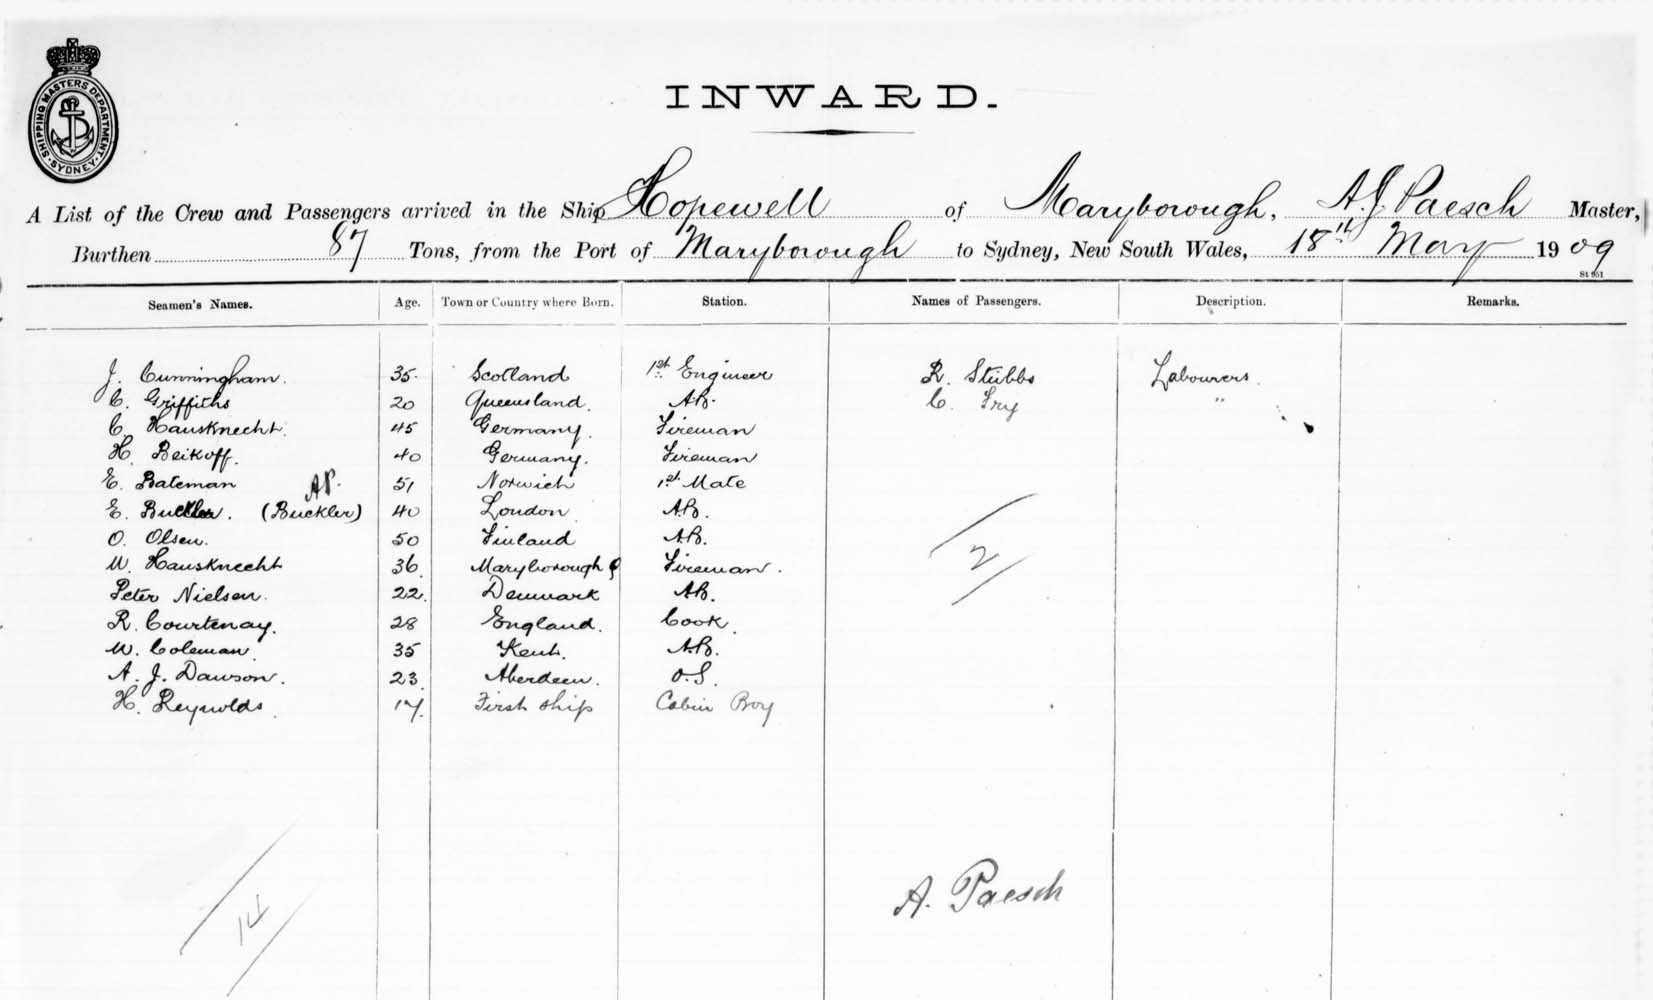 SHIPPING MASTERS DEPARTMENT. SYDNEY
INWARD.
A List of the Crew and Passengers arrived in the Ship Hopewell of Maryborough, A. J. Paesch Master,
Burthen 87 Tons, from the Port of Maryborough to Sydney, New South Wales, 18th May 1909
St 951
Seamen's Names. Age. Town or Country where Born. Station. Names of Passengers. Description. Remarks.
J. Cunningham. 35. Scotland 1st Engineer R. Stubbs Labourers.
C. Griffiths 20 Queensland. A.B. C. Fry "
C. Hausknecht. 45 Germany. Fireman
H. Beikoff. 40 Germany. Fireman
E. Bateman 51 Norwich 1st Mate
E. (Buckler) 40 London A.B.
O. Olsen. 50 Finland A.B.
W. Hausknecht 36. Maryborough Q Fireman.
Peter Nielsen. 22. Denmark A.B.
R. Courtenay. 28 England. Cook.
W. Coleman. 35 Kent. A.B.
A. J. Dawson. 23. Aberdeen. O.S.
H. Reynolds. 17. First ship Cabin Boy
2
A. Paesch
14